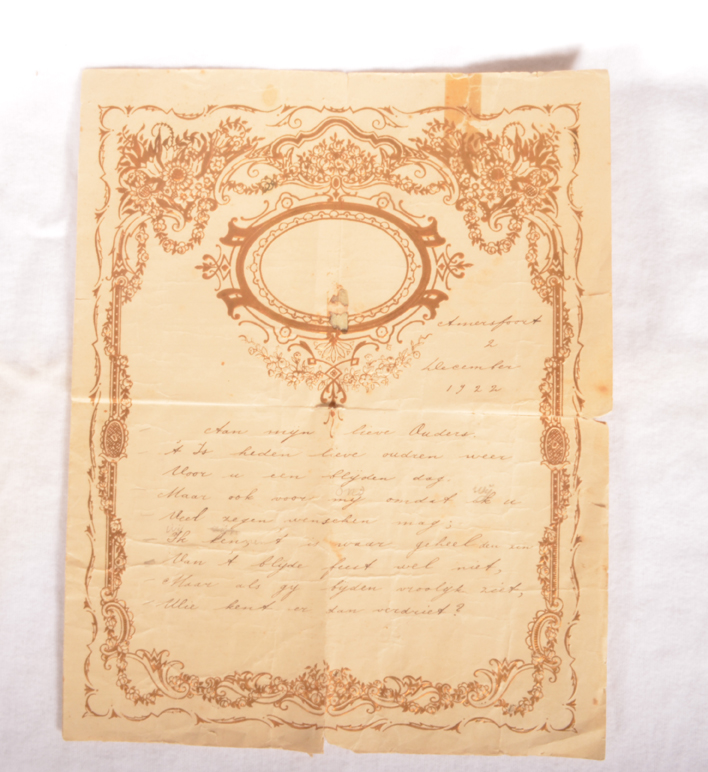 Amersfoort
2
December
1922
Aan mijn lieve Ouders.
't Is heden lieve oudren weer
Voor u een blijden dag.
Maar ook voor mij omdat ik u
Veel zegen wenschen mag;
Ik 't is waar geheel
Van 't blijde feest wel niet,
Maar als gij tijden vroolijk ziet,
Wie kent er dan verdriet?